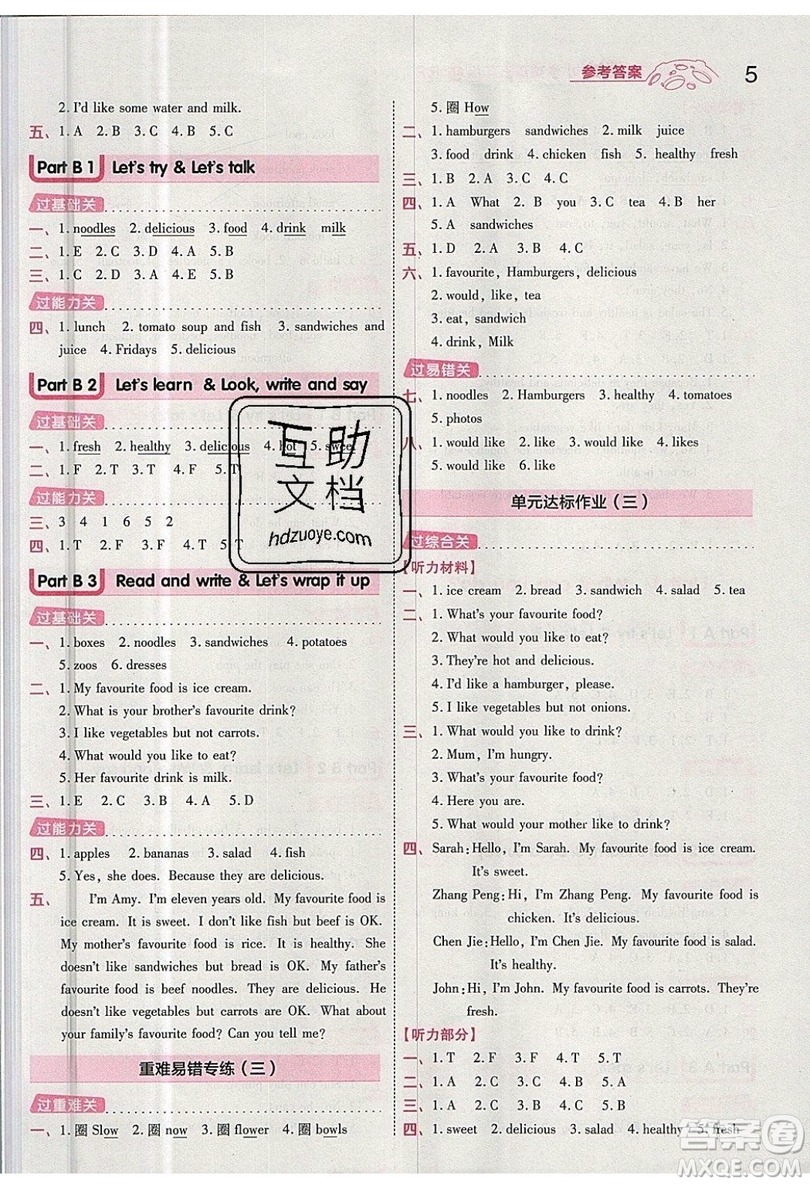 参考答案
5
2. I'd like some water and milk.
五、1. A 2. B 3. C 4. B 5. C
Part B 1 Let's try & Let's talk
过基础关
一、1. noodles 2. delicious 3. food 4. drink milk
二、1. E 2. C 3. A 4. D 5. B
三、1. C 2. D 3. A 4. E 5. B
过能力关
四、1. lunch 2. tomato soup and fish 3. sandwiches and
juice 4. Fridays 5. delicious
Part B 2 Let's learn & Look, write and say
过基础关
一、1. fresh 2. healthy 3. delicious 4. hot 5. sweet
二、1. F 2. T 3. T 4. F 5. T
过能力关
三、3 4 1 6 5 2
四、1. T 2. F 3. T 4. F 5. T
Part B 3 Read and write & Let's wrap it up
过基础关
一、1. boxes 2. noodles 3. sandwiches 4. potatoes
5. zoos 6. dresses
二、1. My favourite food is ice cream.
2. What is your brother's favourite drink?
3. I like vegetables but not carrots.
4. What would you like to eat?
5. Her favourite drink is milk.
三、1. E 2. C 3. B 4. A 5. D
过能力关
四、1. apples 2. bananas 3. salad 4. fish
5. Yes, she does. Because they are delicious.
五、 I'm Amy. I'm eleven years old. My favourite food is
ice cream. It is sweet. I don't like fish but beef is OK.
My mother's favourite food is rice. It is healthy. She
doesn't like sandwiches but bread is OK. My father's
favourite food is beef noodles. They are delicious. He
doesn't like vegetables but carrots are OK. What about
your family's favourite food? Can you tell me?
重难易错专练(三)
过重难关
一、1. 圈 Slow 2. 圈 now 3. 圈 flower 4. 圈 bowls
5. 圈 How
二、1. hamburgers sandwiches 2. milk juice
3. food drink 4. chicken fish 5. healthy fresh
三、1. B 2. A 3. C 4. A 5. C
四、1. A What 2. B you 3. C tea 4. B her
5. A sandwiches
五、1. D 2. A 3. C 4. E 5. B
六、1. favourite, Hamburgers, delicious
2. would, like, tea
3. eat, sandwich
4. drink, Milk
过易错关
七、1. noodles 2. Hamburgers 3. healthy 4. tomatoes
5. photos
八、1. would like 2. like 3. would like 4. likes
5. would like 6. like
单元达标作业(三)
过综合关
【听力材料】
一、1. ice cream 2. bread 3. sandwich 4. salad 5. tea
二、1. What's your favourite food?
2. What would you like to eat?
3. They're hot and delicious.
4. I'd like a hamburger, please.
5. I like vegetables but not onions.
三、1. What would you like to drink?
2. Mum, I'm hungry.
3. What's your favourite food?
4. Here you are.
5. What would your mother like to drink?
四、Sarah: Hello, I'm Sarah. My favourite food is ice cream.
It's sweet.
Zhang Peng: Hi, I'm Zhang Peng. My favourite food is
chicken. It's delicious.
Chen Jie: Hello, I'm Chen Jie. My favourite food is salad.
It's healthy.
John: Hi, I'm John. My favourite food is carrots. They're
fresh.
【听力部分】
一、1. T 2. F 3. F 4. T 5. F
二、1. C 2. A 3. B 4. B 5. A
三、1. B 2. A 3. A 4. A 5. B
四、1. sweet 2. delicious 3. salad 4. healthy 5. fresh
互助
文档
hdzuoye.com
答案圈
MXQE.COM